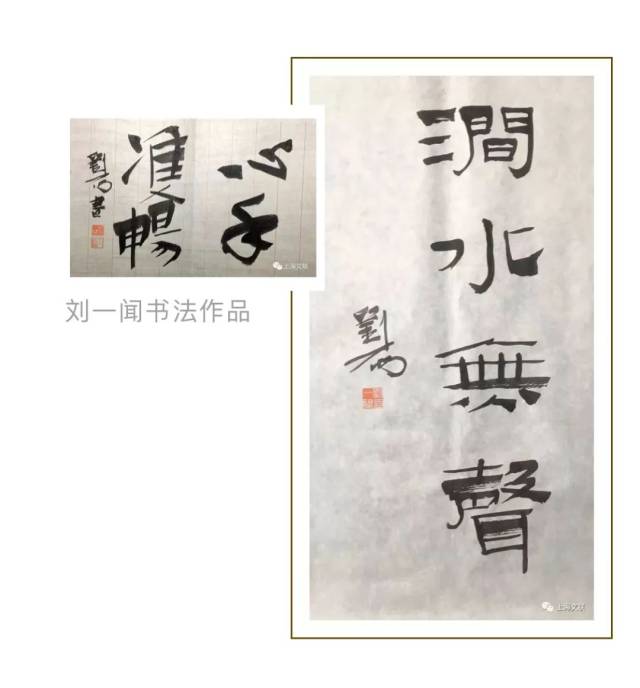 心手
雙暢
劉一闻書
上海文联
刘一闻书法作品
澗水無聲
劉一闻
上海文联